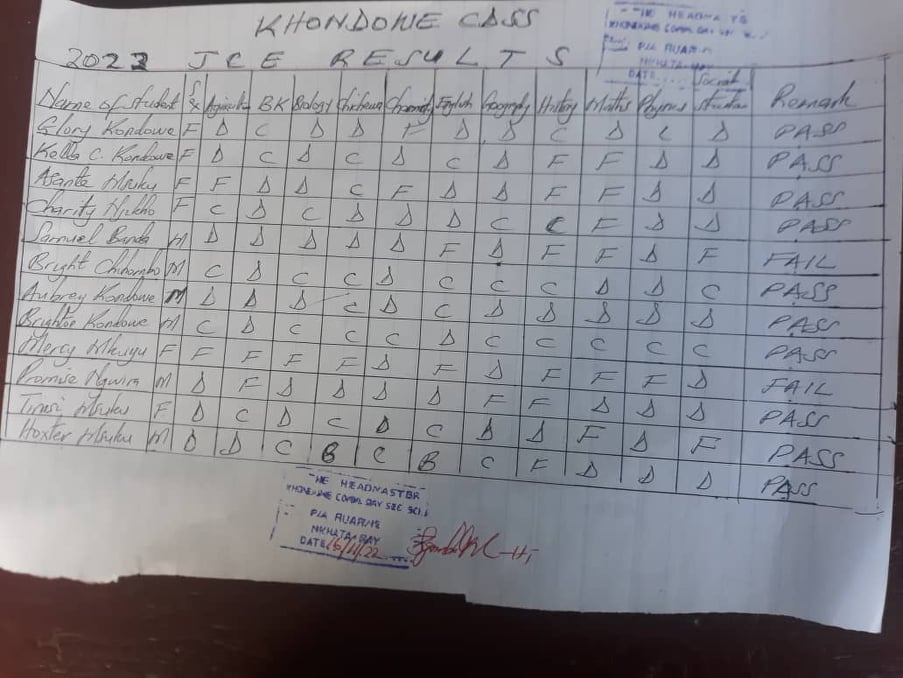 KHONDOWE CDSS
2022 JCE RESULTS
THE HEADMA
P/A RUAR
NKHATA-BAY
DATE
Name of student Sex Agriculture BK Biology Chichewa Chemistry English Geography History Maths Physics Social studies Remark
Glory Kondowe F D C D D F D D C D C D PASS
Kella C. Kondowe F D C D C D C D F F D D PASS
Asante Msuku F F D D C F D D F F D D PASS
Charity F C D C D D D C C F D D PASS
Samuel Banda M D D D D D F D F F D F FAIL
Bright Chihambo M C D C C D C C C D D C PASS
Aubrey Kondowe M D D D C D C D D D D D PASS
Brighton Kondowe M C D C C C D C C C C C PASS
Mercy Mkuyu F F F F F D F D F F F D FAIL
Promise Ngwira M D F D D D D F F D D D PASS
Tinsi Msuku F D C D C D C D D F D F PASS
Hoxter Msuku M D D C B C B C F D D D PASS
THE HEADMASTER
KHONDOWE COMM. DAY SEC SCH.
P/A RUARWE
NKHATA-BAY
DATE 15/11/22